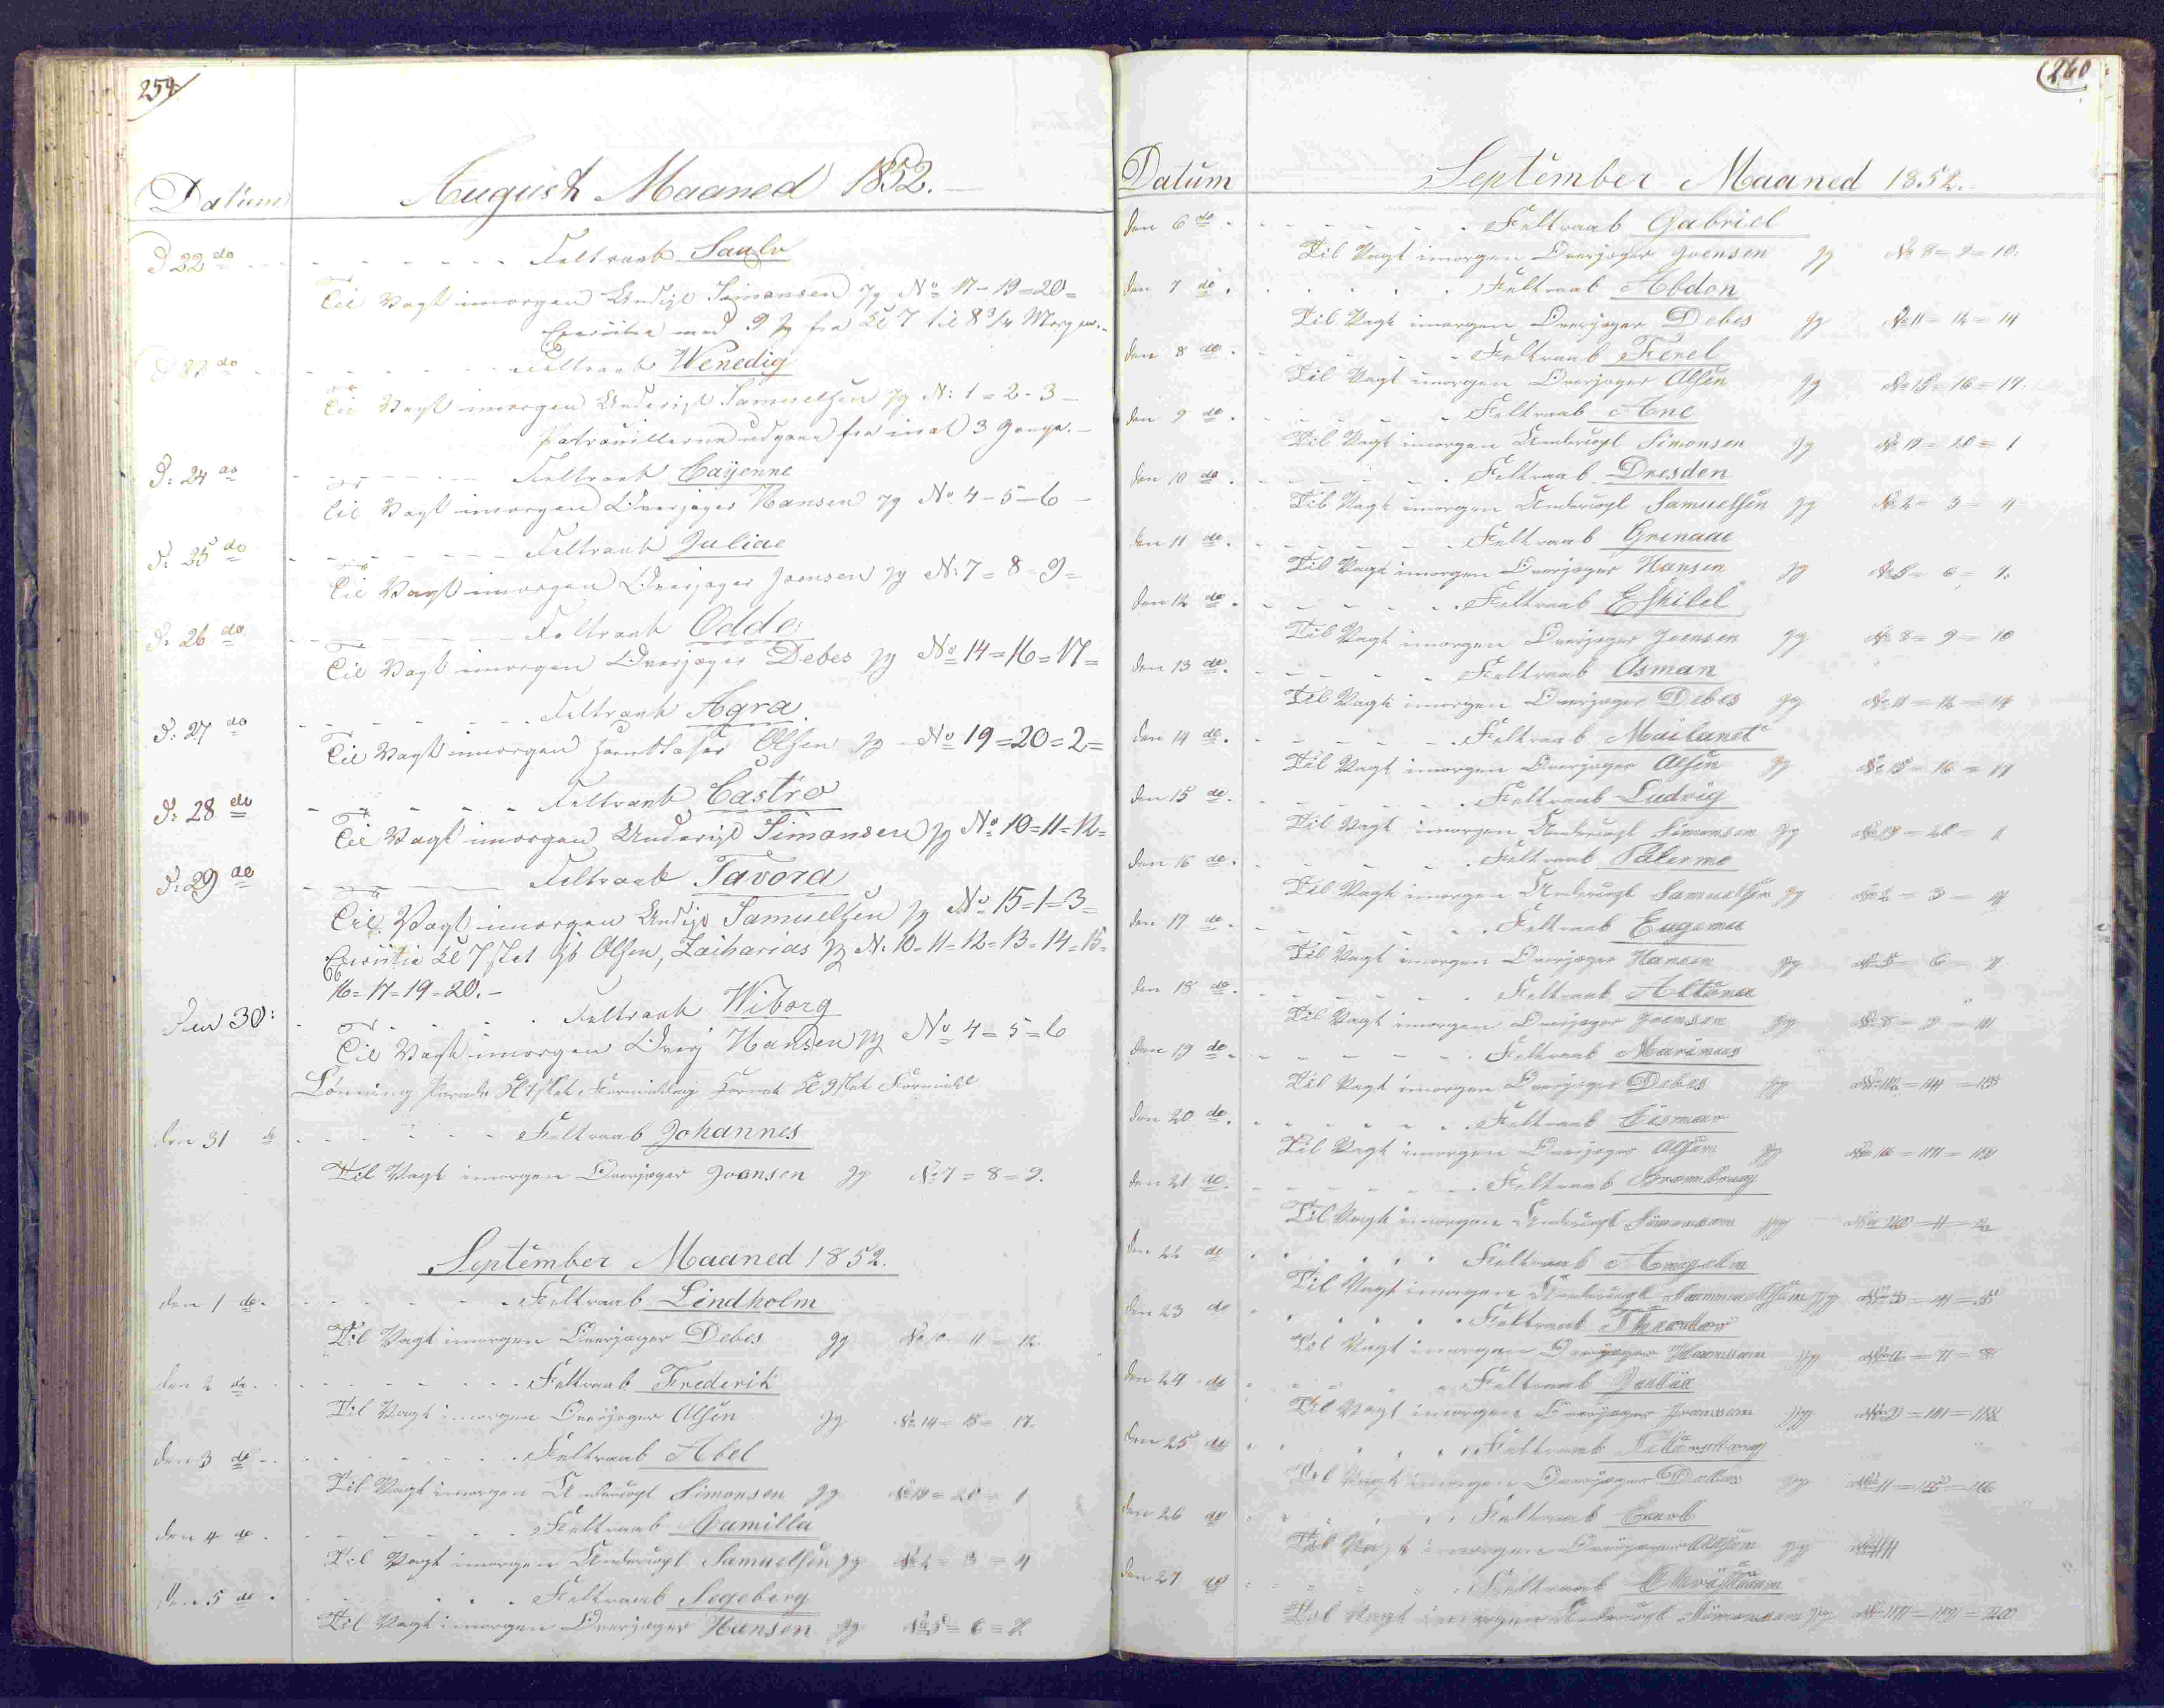 259
August Maaned 1852.
Datum
D 22 do Feltraab Saulo
Til Vagt imorgen Undijæ Simonsen Jg No 17-19=20=
Exersitie med 9 Jg fra Kl 7 til 8 3/4 Morgen.
D 23 do Feltraab Wenedig
Til Vagt imorgen Underjæ Samuelsen Jg N: 1=2-3-
Patrouillerne udgaae fra inat 3 Gange.
D: 24 do Feltraab Cayenne
Til Vagt imorgen Overjæger Hansen Jg No 4-5-6-
D: 25 do Feltraab Juliae
Til Vagt imorgen Overjæger Joensen Jg N: 7=8=9=
D: 26 do Feltraab Odde
Til Vagt imorgen Overjæger Debes Jg No 14=16=17=
D: 27 do Feltraab Agra.
Til Vagt imorgen Hornblæser Olsen Jg No 19=20=2=
D: 28 do Feltraab Castro
Til Vagt imorgen Underjæ Simonsen Jg No 10=11=12=
D: 29 do Feltraab Tavora
Til Vagt imorgen Undjæ Samuelsen Jg No 15=1=3=
Exersitie Kl 7 slet Hb Olsen, Zacharias Jg N. 10-11-12-13-14-15-
16=17=19=20.-
Den 30: Feltraab Wiborg
Til Vagt imorgen Overj Hansen Jg No 4=5=6
Lønning Parade Kl 7 slet Formiddag Kl 9 slet Formidd
Den 31 de Feltraab Johannes
Til Vagt imorgen Overjæger Joensen Jg No 7=8=9.
September Maaned 1852.
den 1 de. Feltraab Lindholm
Til Vagt imorgen Overjæger Debes Jg No 10-11-12.
den 2 de. Feltraab Frederik
Til Vagt imorgen Overjæger Olsen Jg No 14=15=17.
den 3 de Feltraab Abel
Til Vagt imorgen Undervagt Simonsen Jg No 19=20=1
den 4 de. Feltraab Camilla
Til Vagt imorgen Undervagt Samuelsen Jg No 2=3=4
den 5 de. Feltraab Segeberg
Til Vagt imorgen Overjæger Hansen Jg No 5=6=7.
260
Datum September Maaned 1852.
den 6 de Feltraab Gabriel
Til Vagt imorgen Overjæger Joensen Jg No 8=9=10.
den 7 de. Feltraab Abdon
Til Vagt imorgen Overjæger Debes Jg No 11=12=14
den 8 de. Feltraab Ferel
Til Vagt imorgen Overjæger Olsen Jg No 15=16=17.
den 9 de. Feltraab Ane
Til Vagt imorgen Undervagt Simonsen Jg No 19=20=1
den 10 de. Feltraab Dresden
Til Vagt imorgen Undervagt Samuelsen Jg No 2=3=4
den 11 de. Feltraab Grenaae
Til Vagt imorgen Overjæger Hansen Jg No 5=6=7.
den 12 de. Feltraab Eskibel
Til Vagt imorgen Overjæger Joensen Jg No 8=9=10
den 13 de. Feltraab Osman
Til Vagt imorgen Overjæger Debes Jg No 11=12=14
den 14 de. Feltraab Mailand
Til Vagt imorgen Overjæger Olsen Jg No 15=16=17
den 15 de. Feltraab Ludvig
Til Vagt imorgen Undervagt Simonsen Jg No 19=20=1
den 16 de. Feltraab Palermo
Til Vagt imorgen Undervagt Samuelsen Jg No 2=3=4
den 17 de. Feltraab Eugenia
Til Vagt imorgen Overjæger Hansen Jg No 5=6=7
den 18 de. Feltraab Altona
Til Vagt imorgen Overjæger Joensen Jg No 8=9=11
den 19 de. Feltraab Marimas
Til Vagt imorgen Overjæger Debes Jg No 12=14=15
den 20 de. Feltraab Cismar
Til Vagt imorgen Overjæger Olsen Jg No 16=17=19
den 21 de. Feltraab Bromberg
Til Vagt imorgen Undervagt Simonsen Jg No 20=1=2
den 22 de Feltraab Angelin
Til Vagt imorgen Undervagt Samuelsen Jg No 3=4=5
den 23 de Feltraab Theodor
Til Vagt imorgen Overjæger Hansen Jg No 6=7=8
den 24 de Feltraab
Til Vagt imorgen Overjæger Joensen Jg No 9=11=12
den 25 de Feltraab
Til Vagt imorgen Overjæger Debes Jg No 11=15=16
den 26 de Feltraab Carl
Til Vagt imorgen Overjæger Olsen Jg
den 27 de Feltraab Christian
Til Vagt imorgen Undervagt Simonsen Jg No 17=19=20